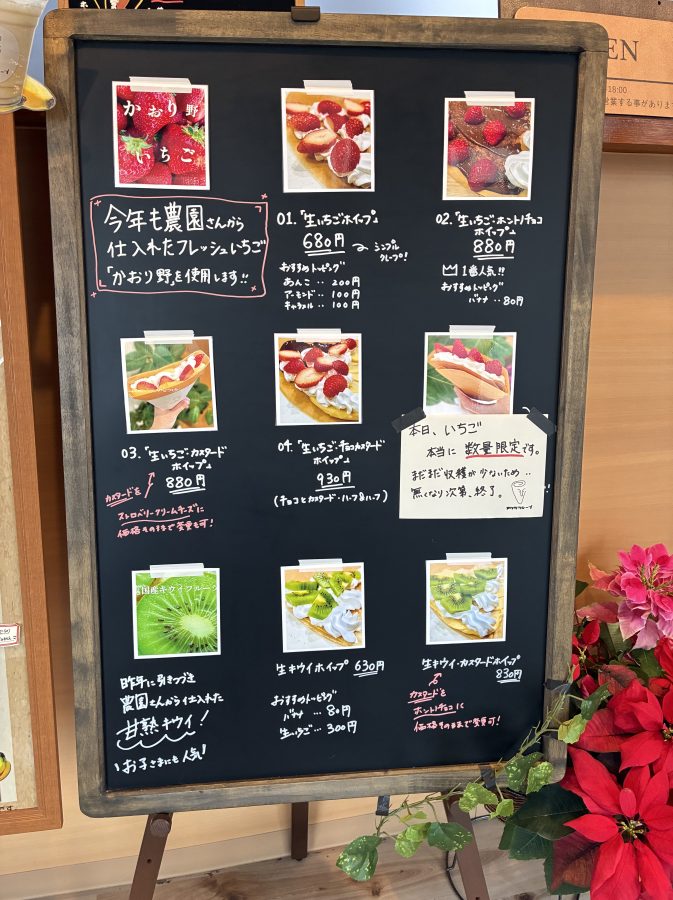 EN
18:00
営業する事があります
かおり野
いちご
今年も農園さんから
仕入れたフレッシュいちご
「かおり野」を使用します!!
01.「生いちごホイップ」
680円
シンプル
クレープ!
おすすめトッピング
あんこ ‥ 200円
アーモンド ‥ 100円
キャラメル ‥ 100円
02.「生いちご・ホントノチョコ
ホイップ」
880円
1番人気!!
おすすめトッピング
バナナ ‥ 80円
03.「生いちご・カスタード
ホイップ」
880円
カスタードを
ストロベリークリームチーズに
価格そのままで変更も可!
04.「生いちご・チョコカスタード
ホイップ」
930円
(チョコとカスタード・ハーフ&ハーフ)
本日、いちご
本当に 数量限定です。
まだまだ収穫が少ないため‥
無くなり次第、終了。
国産キウイフルーツ
昨年に引きつづき
農園さんから仕入れた
甘熟キウイ!
お子さまにも人気!
生キウイホイップ 630円
おすすめトッピング
バナナ ‥ 80円
生いちご ‥ 300円
生キウイ・カスタードホイップ
830円
カスタードを
ホントノチョコに
価格そのままで変更可!